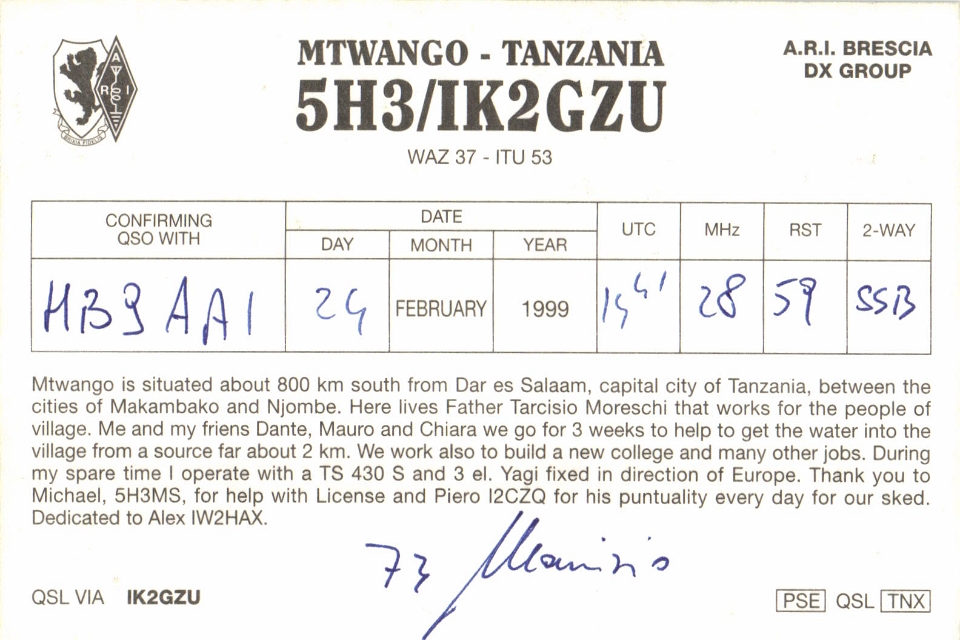 MTWANGO - TANZANIA
A.R.I. BRESCIA
DX GROUP
5H3/IK2GZU
WAZ 37 - ITU 53
A
R I
CONFIRMING
QSO WITH
DATE
DAY MONTH YEAR
UTC MHz RST 2-WAY
HB9AAI FEBRUARY 1999 28 59 SSB
Mtwango is situated about 800 km south from Dar es Salaam, capital city of Tanzania, between the
cities of Makambako and Njombe. Here lives Father Tarcisio Moreschi that works for the people of
village. Me and my friens Dante, Mauro and Chiara we go for 3 weeks to help to get the water into the
village from a source far about 2 km. We work also to build a new college and many other jobs. During
my spare time I operate with a TS 430 S and 3 el. Yagi fixed in direction of Europe. Thank you to
Michael, 5H3MS, for help with License and Piero I2CZQ for his puntuality every day for our sked.
Dedicated to Alex IW2HAX.
73 Maurizio
QSL VIA IK2GZU
PSE QSL TNX